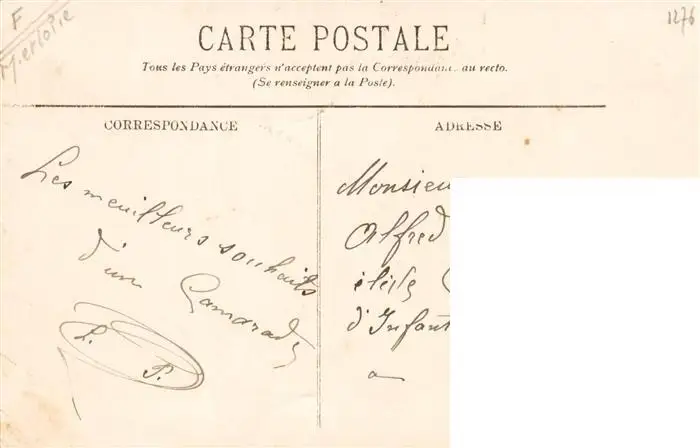 F
M.et Loire
1276
CARTE POSTALE
Tous les Pays étrangers n'acceptent pas la Correspondance au recto.
(Se renseigner a la Poste).
CORRESPONDANCE
ADRESSE
Les meilleurs souhaits
d'un Camarade
L. P.
Monsieu
Alfred
élève
d'Infant
a